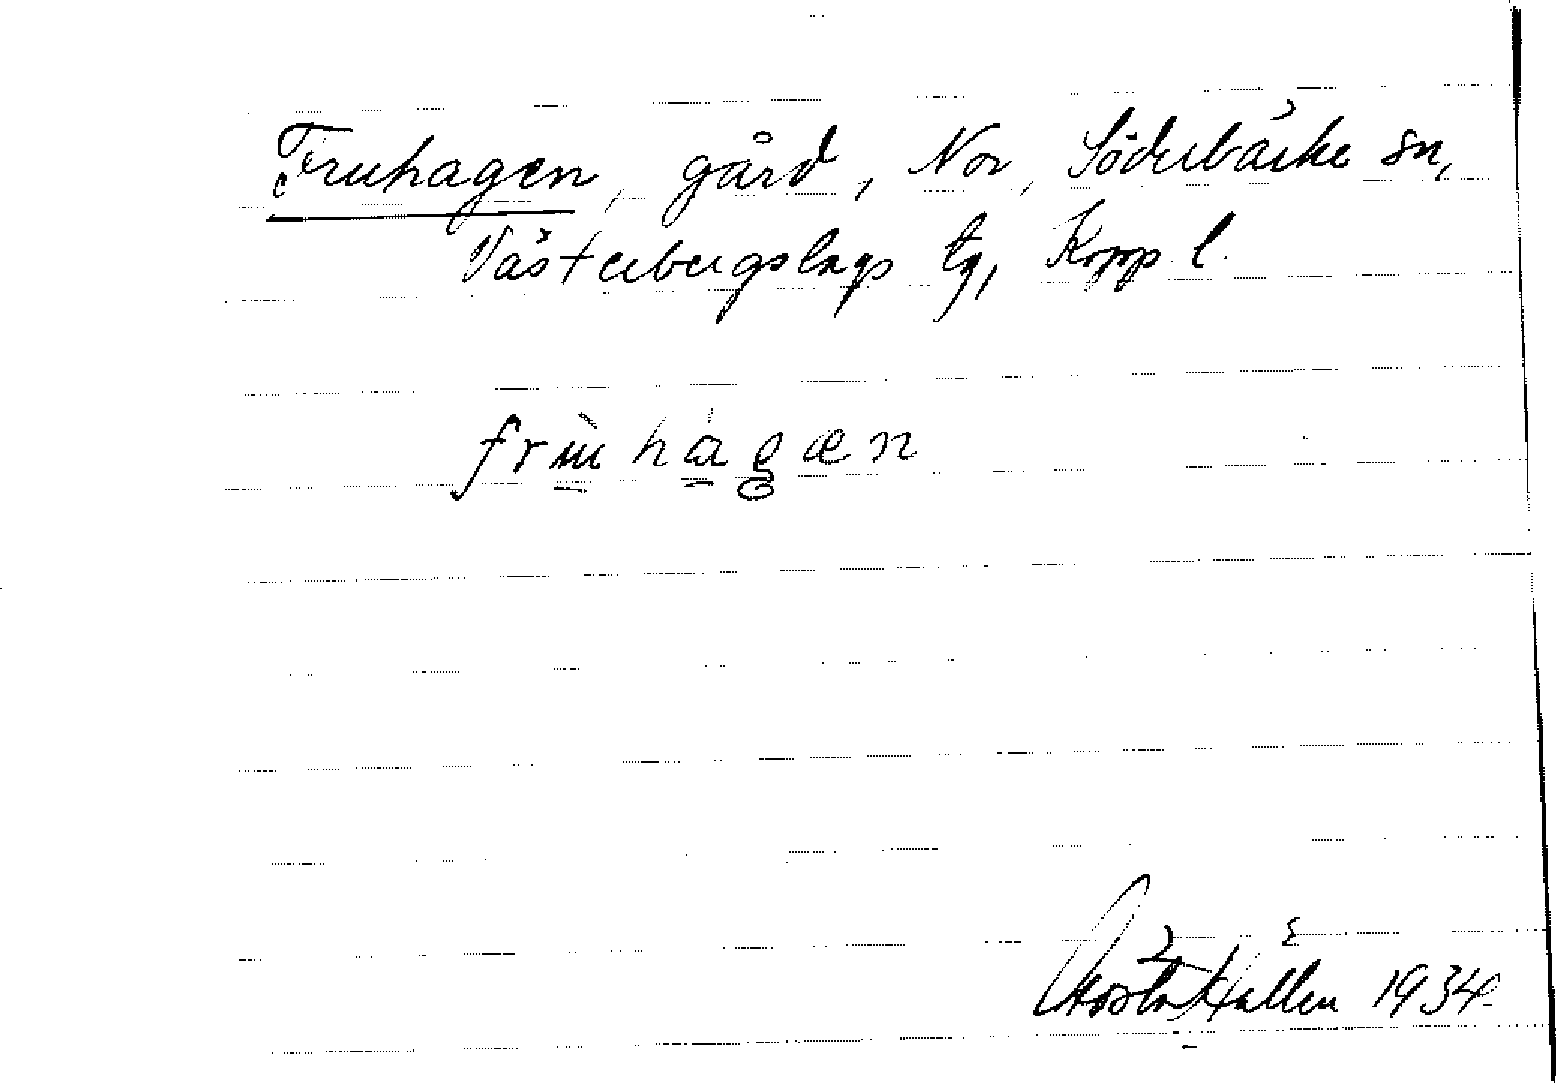 Fruhagen, gård, Nor, Söderbärke sn,
Västerbergslags tg, Kopp. l.
frùhágæn
Gösta Hallén 1934